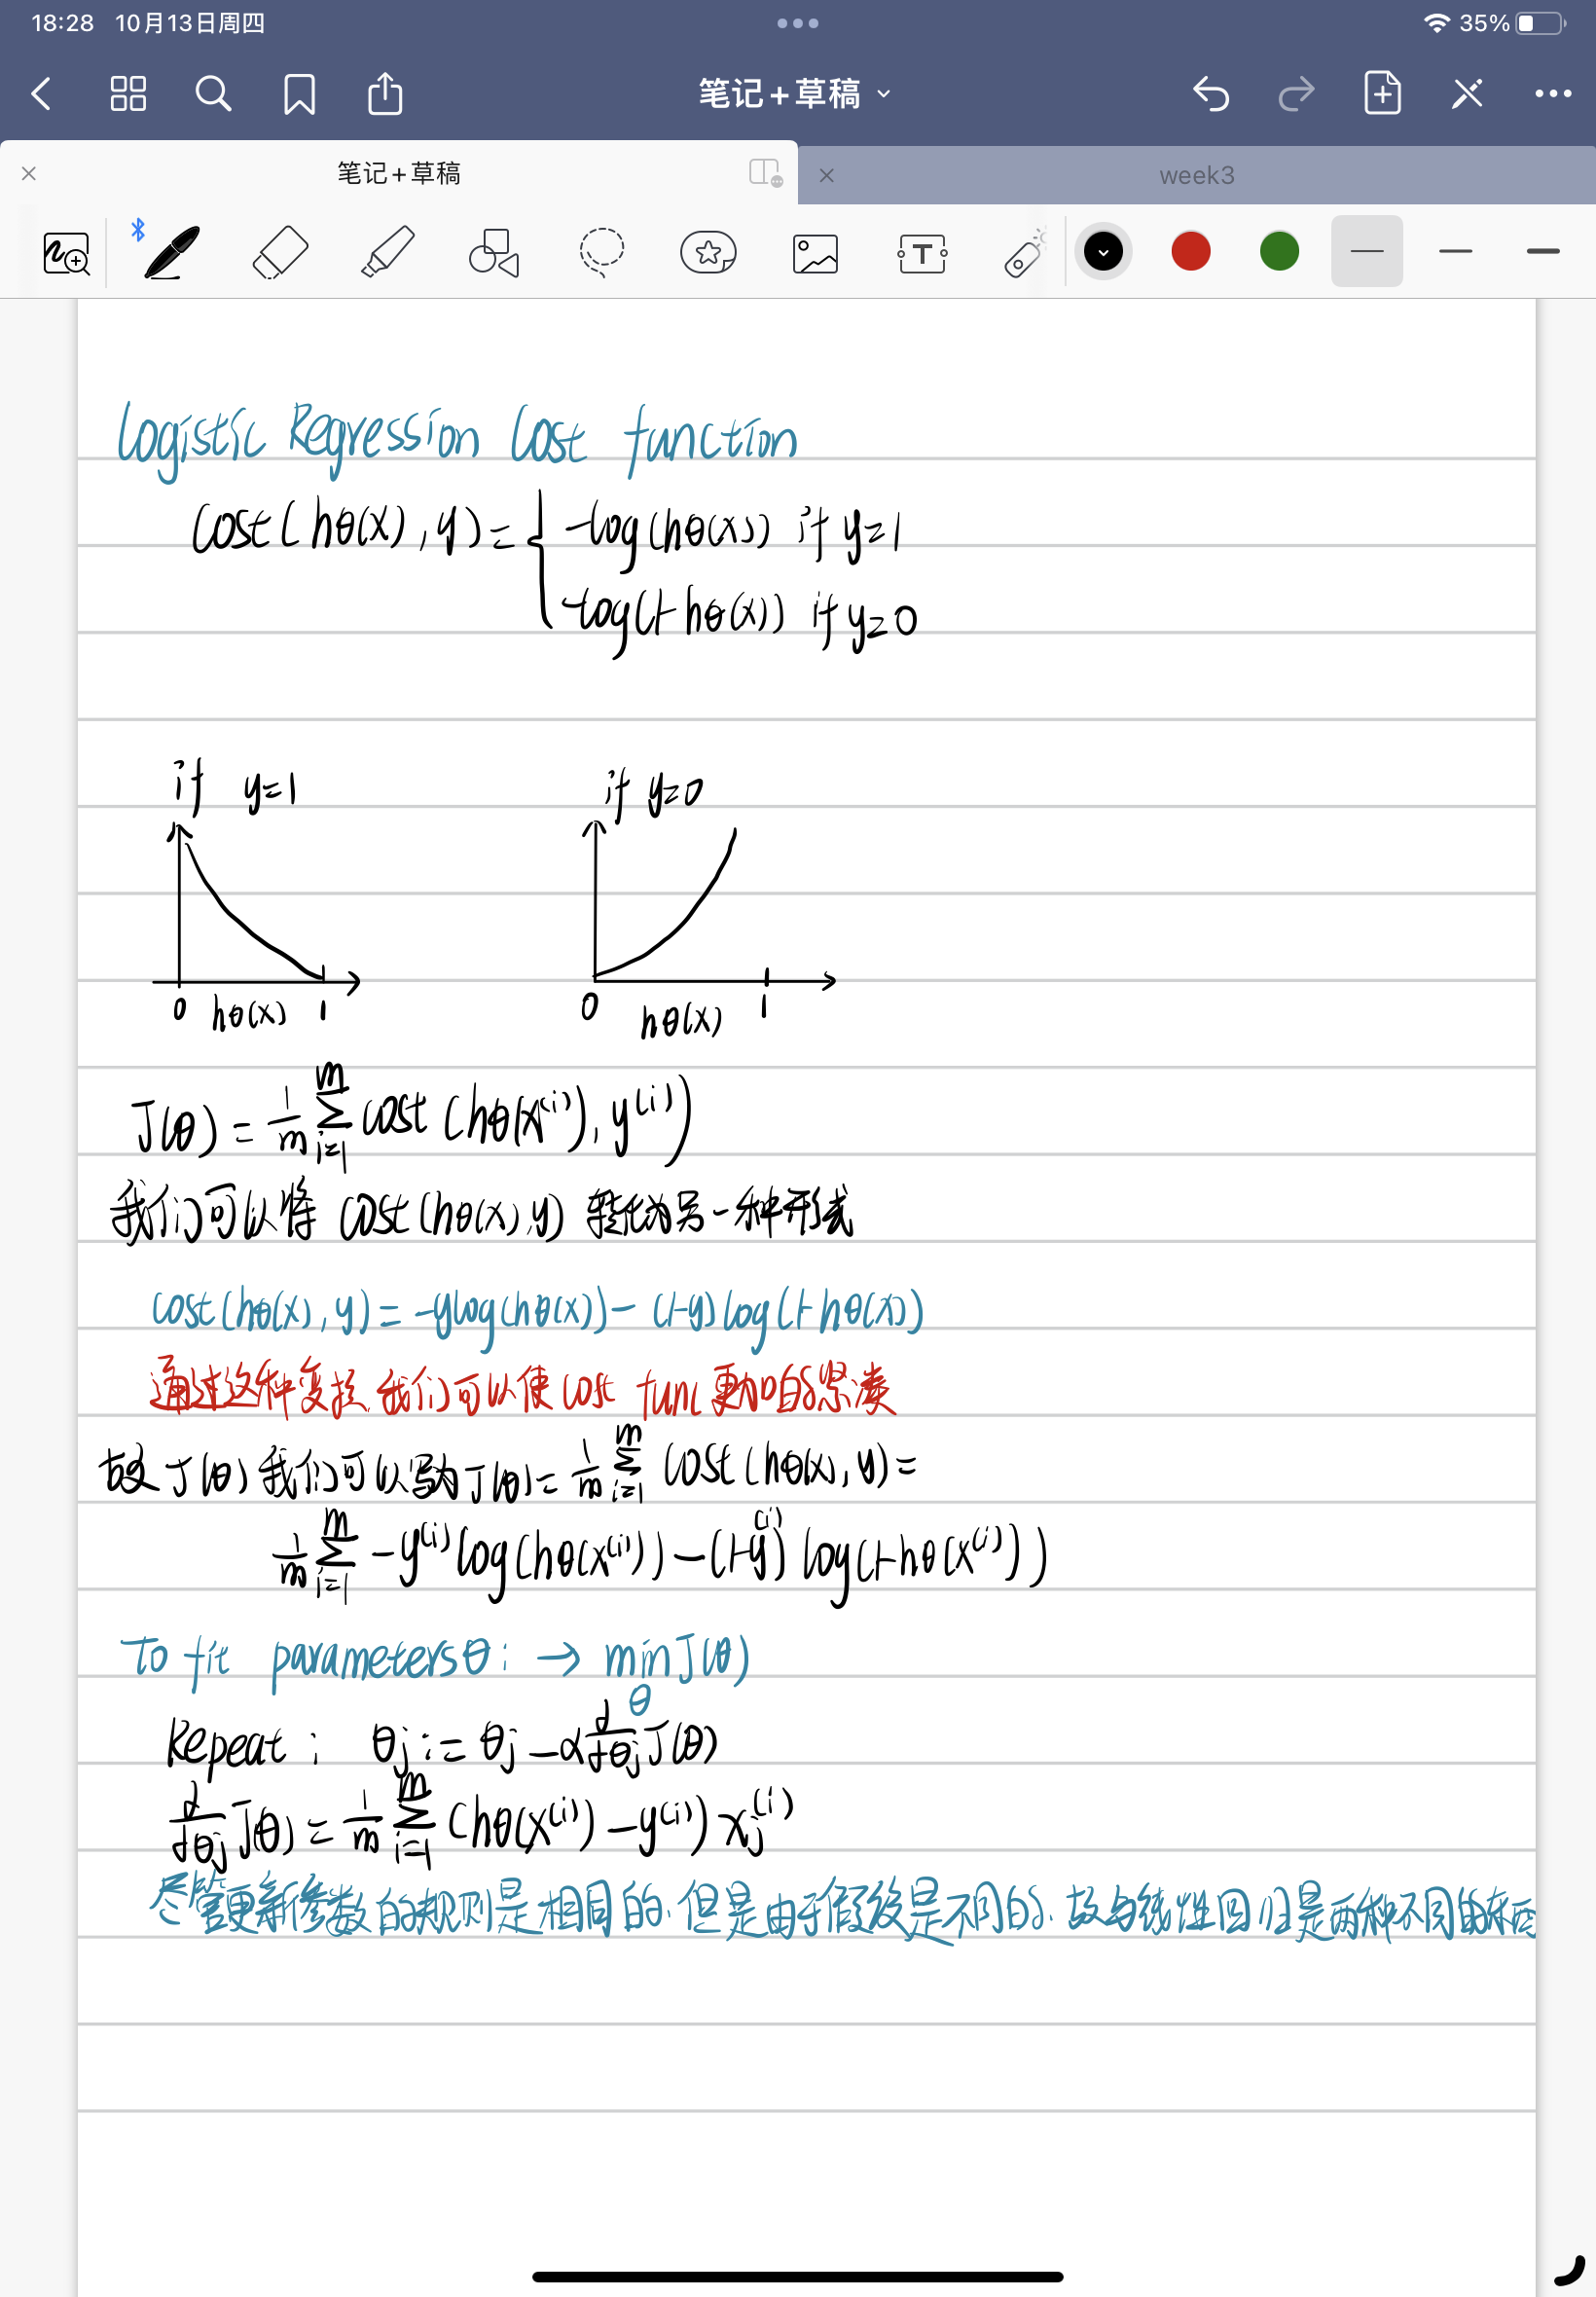 18:28 10月13日周四
35%
笔记+草稿
笔记+草稿
week3
T
Logistic Regression Cost function
Cost(hθ(x), y) = { -log(hθ(x)) if y=1
-log(1-hθ(x)) if y=0
if y=1 if y=0
0 hθ(x) 1 0 hθ(x) 1
J(θ) = 1/m ∑_{i=1}^{m} cost(hθ(x^(i)), y^(i))
我们可以将 cost(hθ(x), y) 转化为另一种形式
cost(hθ(x), y) = -ylog(hθ(x)) - (1-y)log(1-hθ(x))
通过这种变换,我们可以使 cost func 更加的紧凑
故 J(θ) 我们可以写为 J(θ) = 1/m ∑_{i=1}^{m} cost(hθ(x), y) =
1/m ∑_{i=1}^{m} -y^(i) log(hθ(x^(i))) - (1-y^(i)) log(1-hθ(x^(i)))
To fit parameters θ: → min_θ J(θ)
Repeat: θj := θj - α ∂/∂θj J(θ)
∂/∂θj J(θ) = 1/m ∑_{i=1}^{m} (hθ(x^(i)) - y^(i)) xj^(i)
尽管更新参数的规则是相同的,但是由于假设是不同的,故与线性回归是两种不同的东西